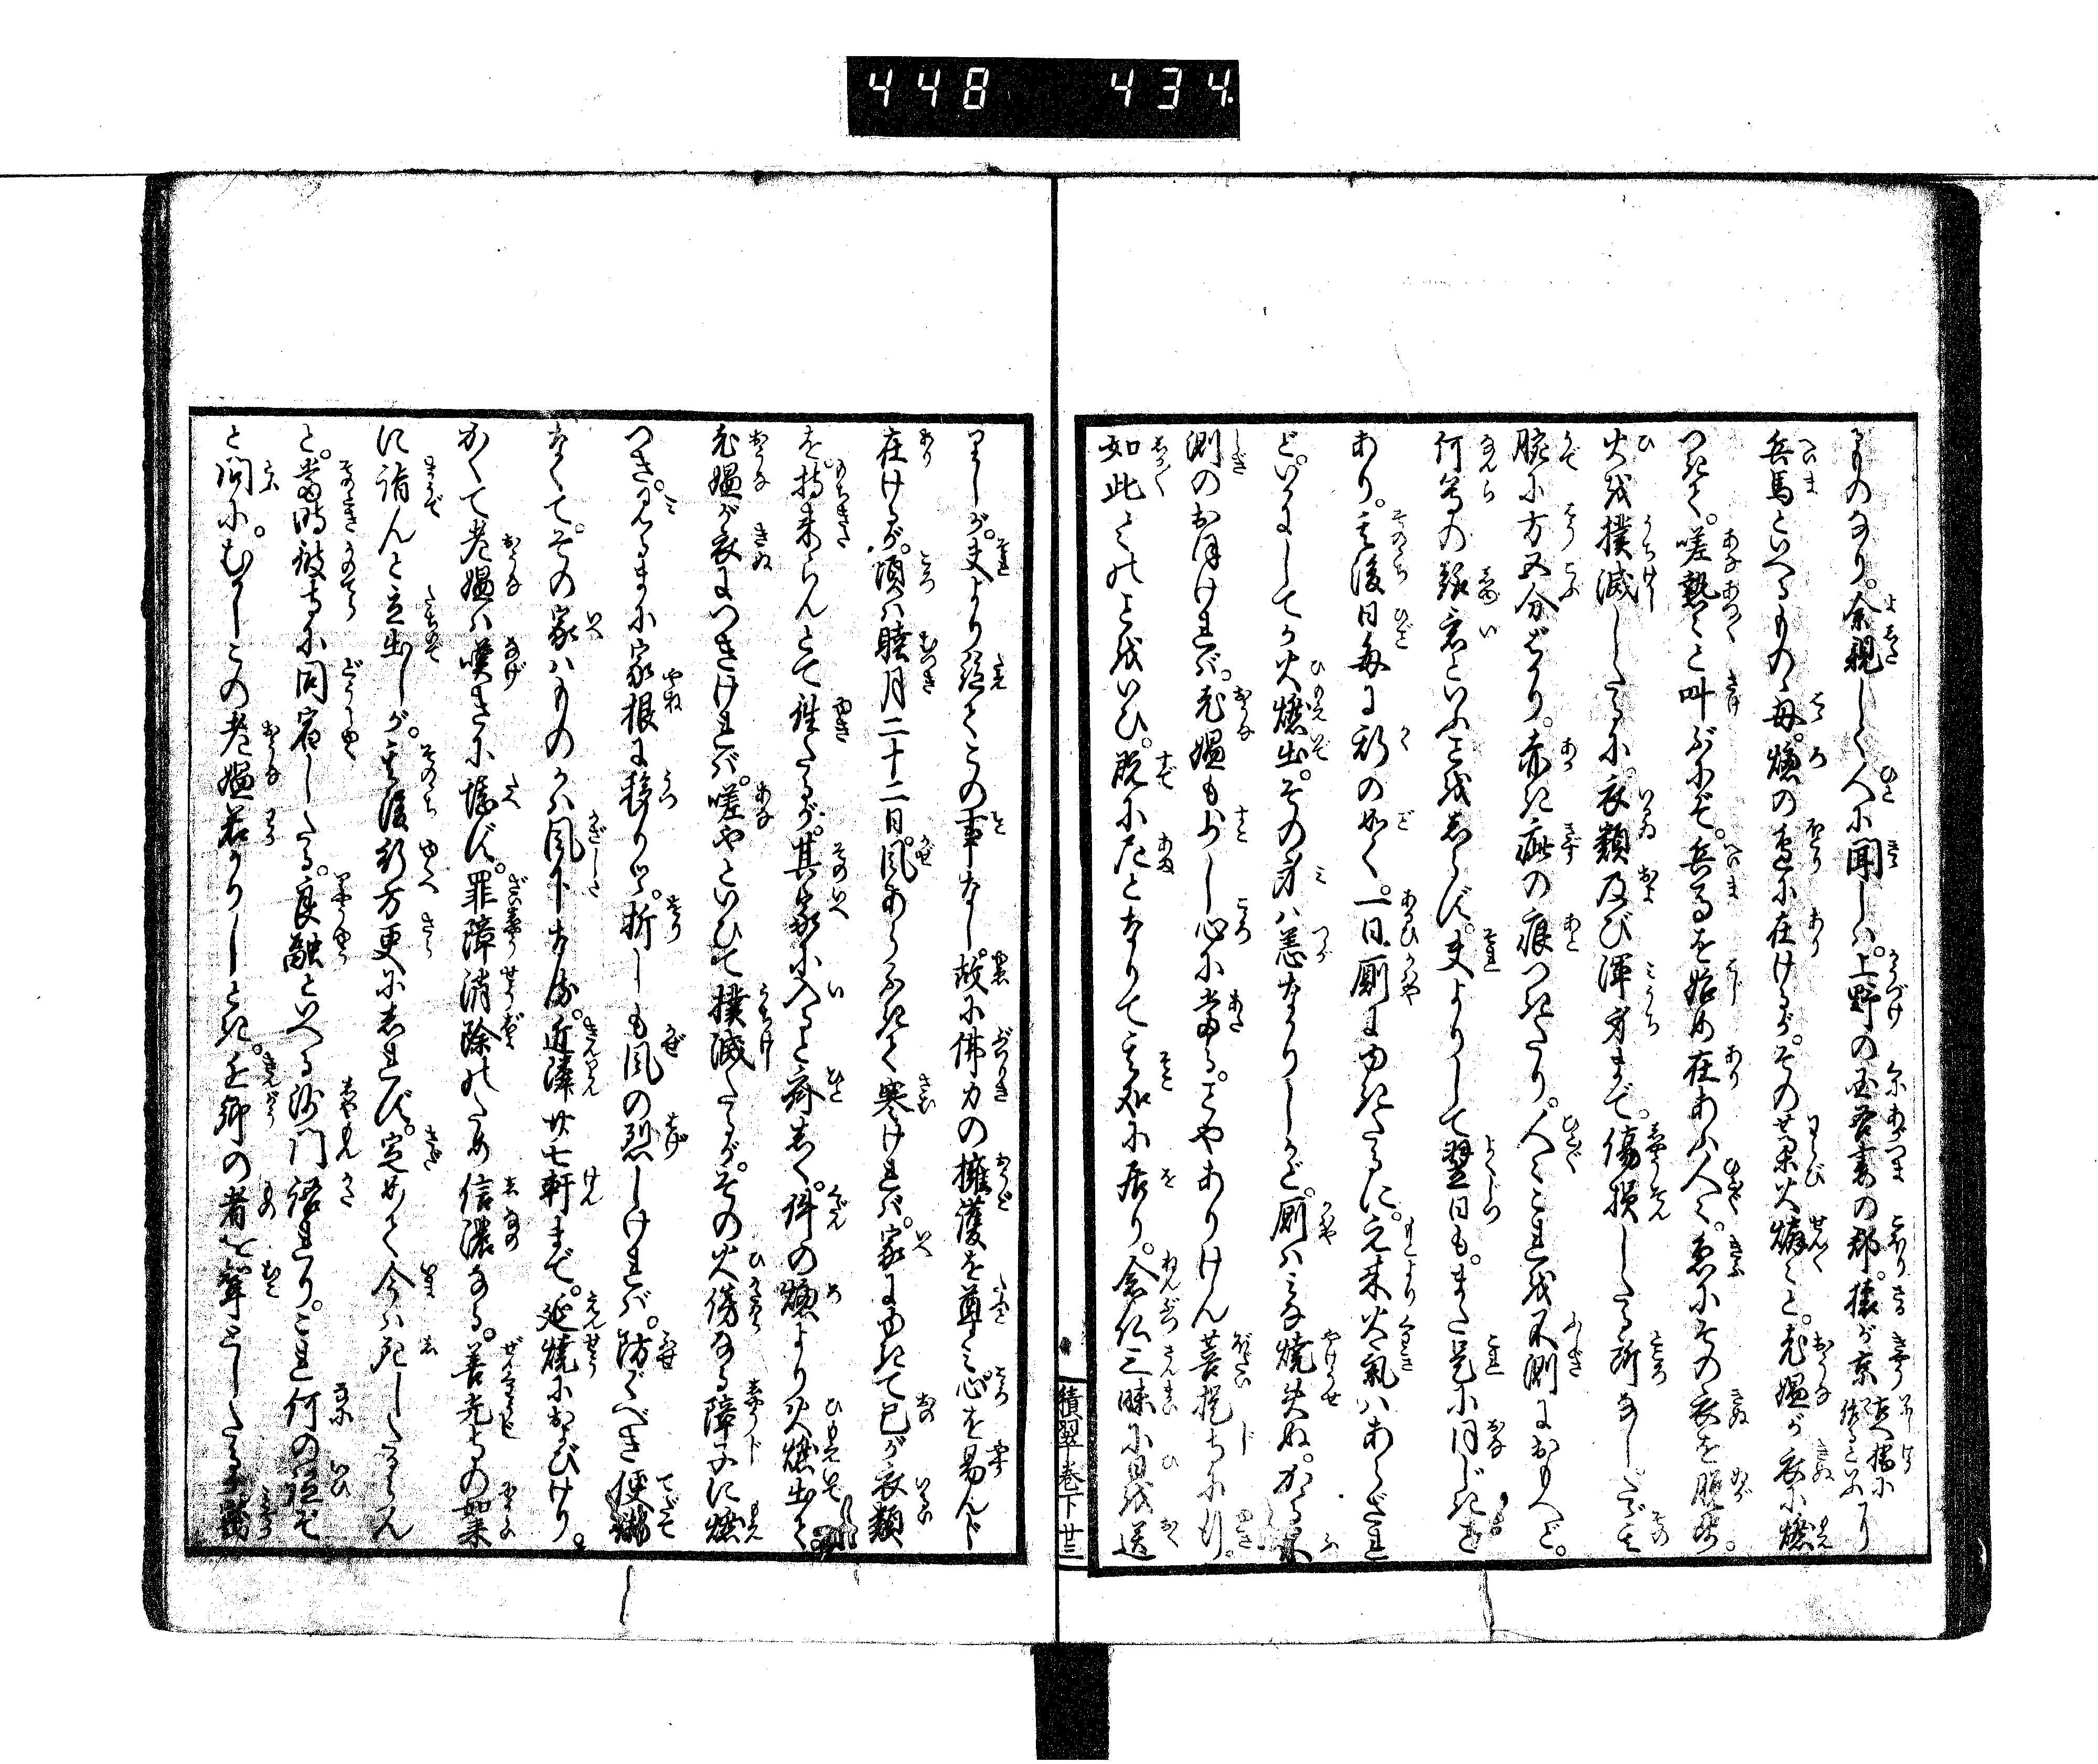 448 434
るものなり。余親しく人に聞しは。上野の国吾妻の郡。猿が京
兵馬といへるものゝ母。爐の邊に在けるが。その藁火燐々と。老媼が衣に燃
つきぬ。嗟熱々と叫ぶにぞ。兵馬を始め在あふ人々。急にその衣を脱せ。
火を撲滅したるに。衣類及び渾身まで。傷損したる所なし。たゞ其
腕に方五分ばかり。赤き疵の痕つきたり。人々これを不測におもへど。
何等の縁衣といふことをしらず。夫よりして翌日も。また是に同じきを
あり。其後日毎に斯の如く。一日厠にゆきたるに。元来火氣はあらざれ
ど。いかにしてか火燃出。その身は恙なかりしかど。厠はみな焼失ぬ。かゝる不
測のおほければ。老媼も少し心に当る。ことやありけん菩提寺に行。
如此々々のよしをいひ。既に尼となりて其処に居り。念仏三昧に日を送
りしが。夫より絶てこの事なし。故に佛力の擁護を尊み心を易んじ
在けるが。頃は睦月二十二日。風あらぶきて寒ければ。家にゆきて己が衣類
を持来らんとて往たるが。其家に入ると齊しく。件の爐より火燃出て。
老媼が衣につきければ。嗟やといひて撲滅たるが。その火傍なる障子に燃
つき。みるまに家根に移りつゝ。折しも風の烈しければ。防ぐべき便
なくて。その家はものかは風下なる。近隣廿七軒まで。延焼におよびけり。
かくて老媼は嘆きに堪ず。罪障消除のため信濃なる。善光寺の如来
に詣んと立出しが。其後行方更にしれず。定めて今は死したらん
と。當時彼寺に同宿したる。良融といへる沙門語れり。これ何の謂ぞ
と問に。むかしこの老媼若かりしとき。近郷の者を聟としたるに
積翠巻下 廿三